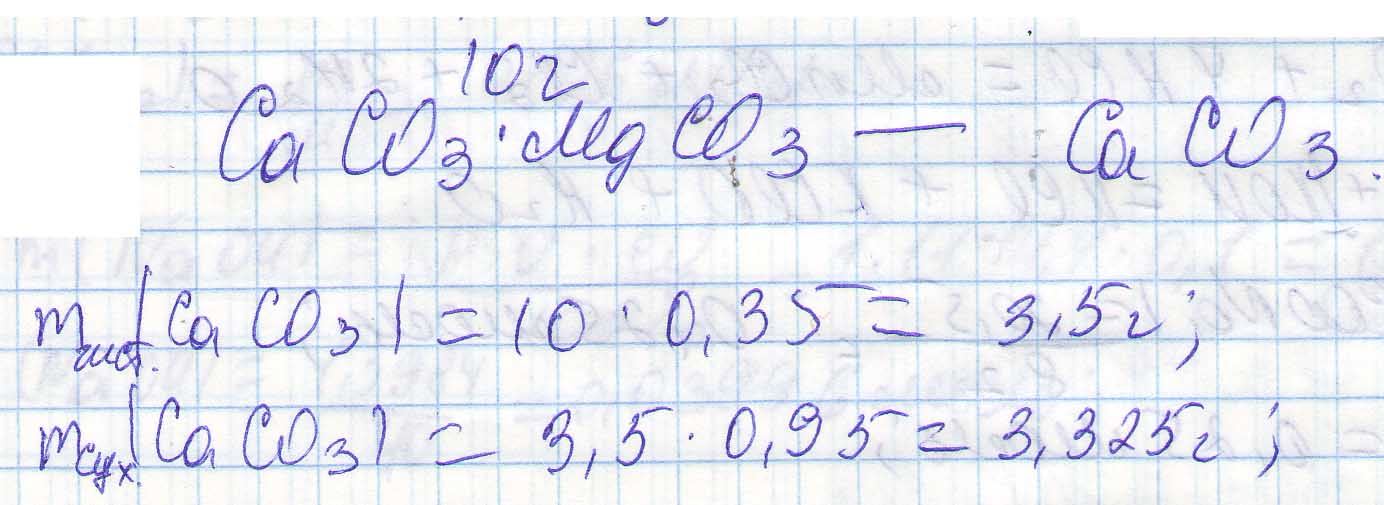 10г
CaCO₃·MgCO₃ — CaCO₃.
mчист.(CaCO₃) = 10·0,35 = 3,5г;
mсух.(CaCO₃) = 3,5·0,95 = 3,325г;